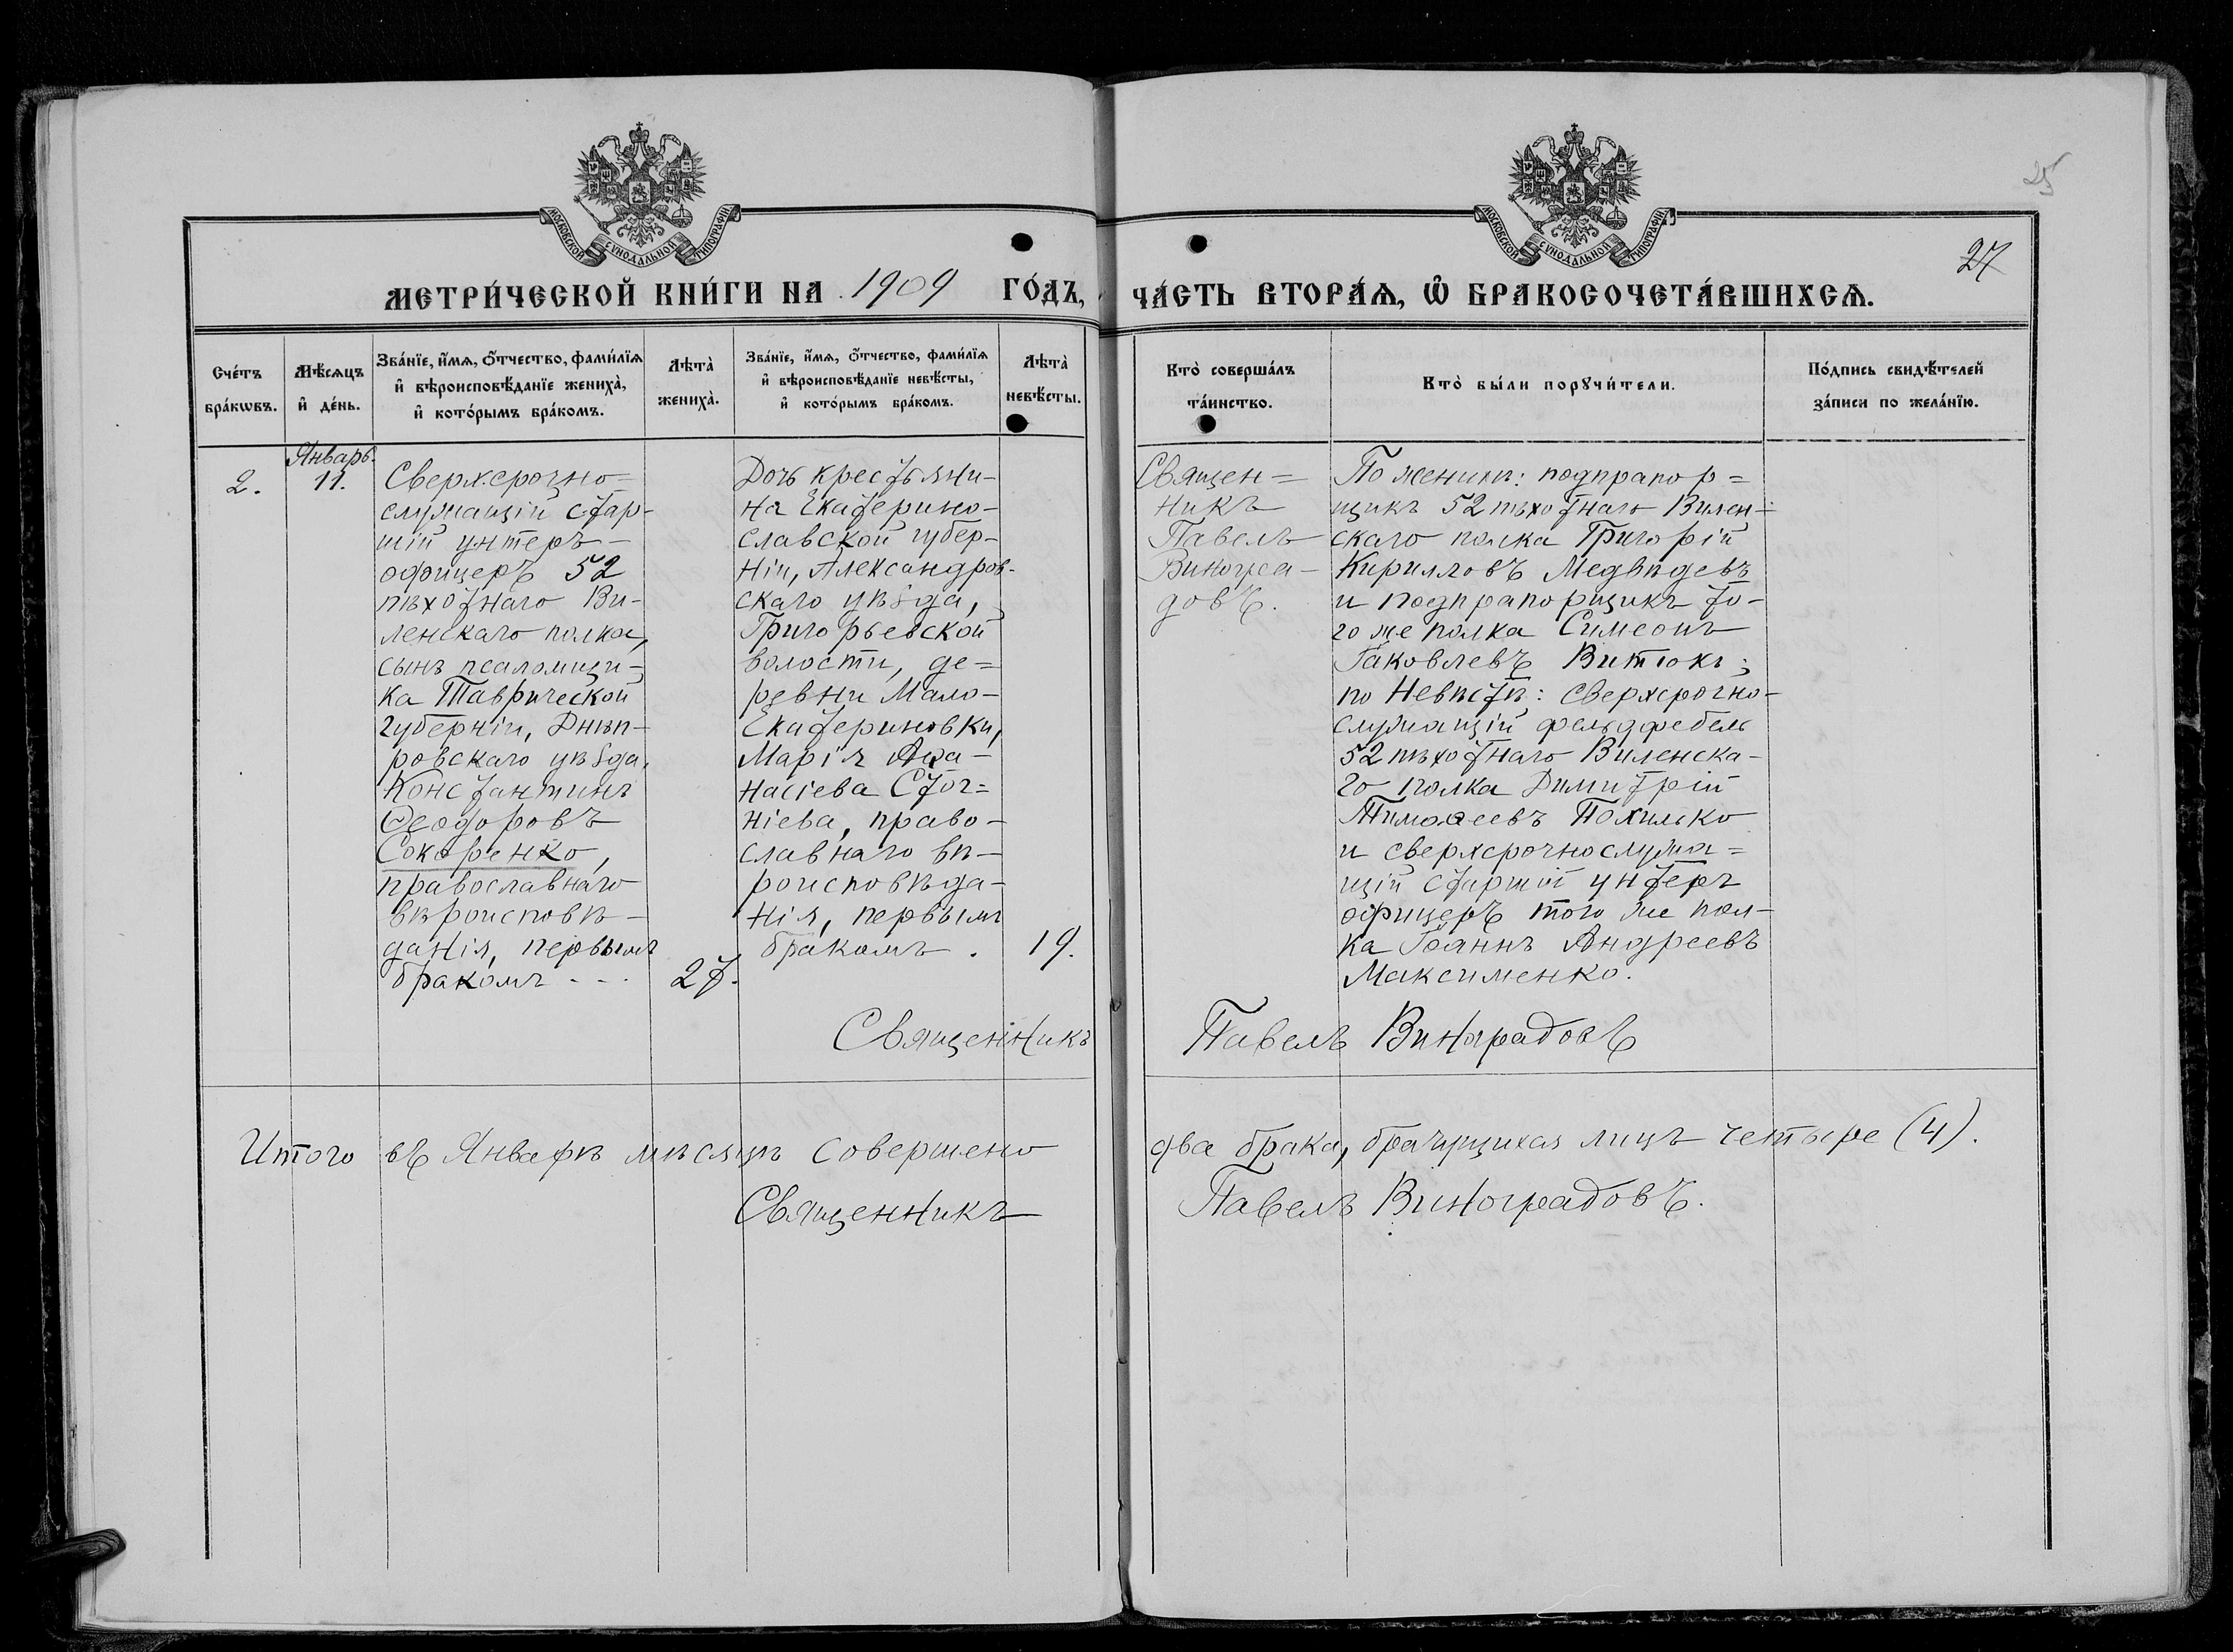 МОСКОВСКОЙ СѴНОДАЛЬНОЙ ТИПОГРАФІИ
МОСКОВСКОЙ СѴНОДАЛЬНОЙ ТИПОГРАФІИ
25
27
МЕТРИ́ЧЕСКОЙ КНИ́ГИ НА 1909 ГО́ДЪ,
ЧА́СТЬ ВТОРА́Ѧ, Ѡ҆ БРАКОСОЧЕТА́ВШИХСѦ.
Сче́тъ
бра́кѡвъ.
Мѣ́сѧцъ
и҆ де́нь.
Зва́нїе, и҆́мѧ, ѻ҆́тчество, фами́лїѧ
и҆ вѣроисповѣ́данїе жениха̀,
и҆ кото́рымъ бра́комъ.
Лѣта̀
жениха̀.
Зва́нїе, и҆́мѧ, ѻ҆́тчество, фами́лїѧ
и҆ вѣроисповѣ́данїе невѣ́сты,
и҆ кото́рымъ бра́комъ.
Лѣта̀
невѣ́сты.
Кто̀ соверша́лъ
та́инство.
Кто̀ бы́ли порꙋчи́тели.
По́дпись свидѣ́телей
за́писи по жела́нїю.
2.
Январь.
11.
Сверхсрочно=
служащій стар-
шій унтеръ-
офицеръ 52
пѣхотнаго Ви-
ленскаго полка,
сынъ псаломщи-
ка Таврической
губерніи, Днѣп-
ровскаго уѣзда,
Константинъ
Ѳеодоровъ
Сокоренко,
православнаго
вѣроисповѣ-
данія, первымъ
бракомъ - - -
27.
Дочь крестьяни-
на Екатерино-
славской губер-
ніи, Александров-
скаго уѣзда,
Григорьевской
волости, де=
ревни Мало-
Екатериновки,
Марія Аѳа-
насіева Стог=
ніева, право-
славнаго вѣ-
роисповѣда-
нія, первымъ
бракомъ.
19.
Священ=
никъ
Павелъ
Виногра-
довъ.
По женихѣ: подпрапор=
щикъ 52 пѣхотнаго Вилен-
скаго полка Григорій
Кирилловъ Медвѣдевъ
и подпрапорщикъ то-
го же полка Симеонъ
Іаковлевъ Витюкъ;
по Невѣстѣ: сверхсрочно-
служащій фельдфебель
52 пѣхотнаго Виленска-
го полка Димитрій
Тимоѳеевъ Похилько
и сверхсрочнослужа=
щій старшій унтеръ
офицеръ того же пол-
ка Іоаннъ Андреевъ
Максименко.
Священникъ Павелъ Виноградовъ
Итого въ Январѣ мѣсяцѣ совершено два брака, брачущихся лицъ четыре (4).
Священникъ Павелъ Виноградовъ.